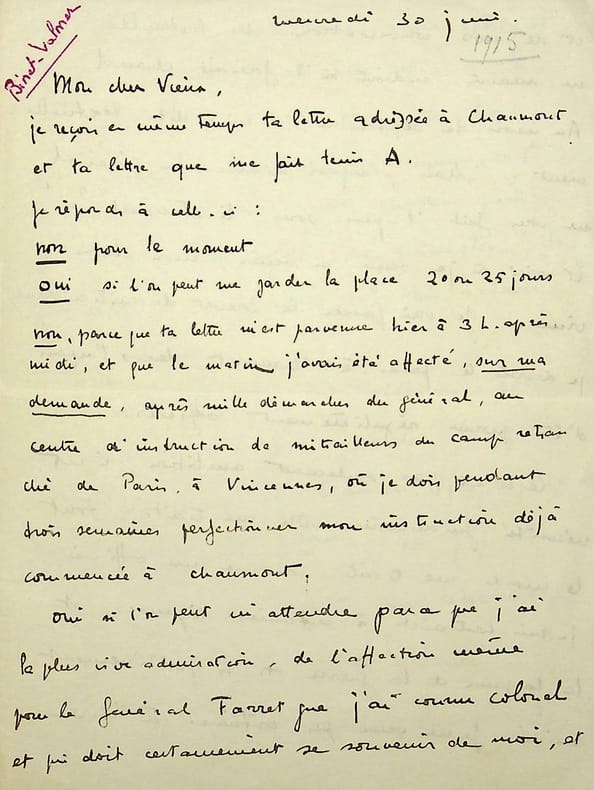 Binet-Valmer
mercredi 30 juin.
1915
Mon cher Vieux,
je reçois en même temps ta lettre adressée à Chaumont
et ta lettre que me fait tenir A.
Je réponds à celle-ci :
non pour le moment
oui si l'on peut me garder la place 20 ou 25 jours
non, parce que ta lettre m'est parvenue hier à 3 h. après
midi, et que le matin j'avais été affecté, sur ma
demande, après mille démarches du général, au
centre d'instruction de mitrailleurs du camp retran
ché de Paris, à Vincennes, où je dois pendant
trois semaines perfectionner mon instruction déjà
commencée à Chaumont.
Oui si l'on peut m'attendre parce que j'ai
la plus vive admiration, de l'affection même
pour le général Farret que j'ai connu colonel
et qui doit certainement se souvenir de moi, et